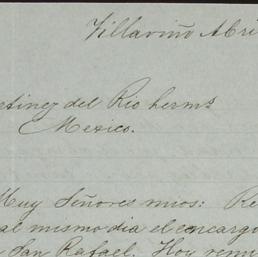 Villaviño Abri
rtinez del Rio herms
Mexico.
Muy Señores mios: Re
al mismo dia el encargo
San Rafael. Hoy remi